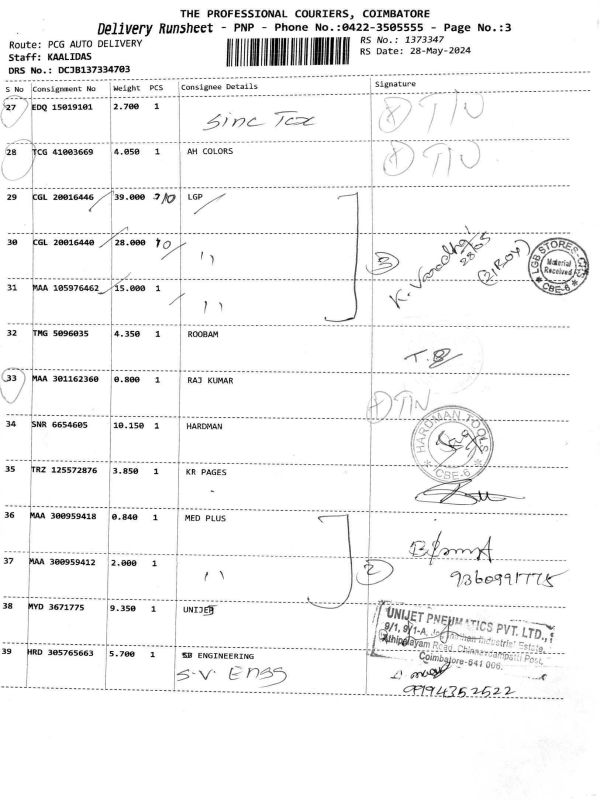 THE PROFESSIONAL COURIERS, COIMBATORE
Delivery Runsheet - PNP - Phone No.:0422-3505555 - Page No.:3
Route: PCG AUTO DELIVERY
RS No.: 1373347
Staff: KAALIDAS
RS Date: 28-May-2024
DRS No.: DCJB137334703
S No Consignment No Weight PCS Consignee Details Signature
27 EDQ 15019101 2.700 1 Sinc Tex
28 TCG 41003669 4.050 1 AH COLORS
29 CGL 20016446 39.000 LGP
30 CGL 20016440 28.000 10 ,,
3 K. Varadha 28/05
LGB STORES
Material Received
CBE-6
31 MAA 105976462 15.000 1 ,,
32 TMG 5096035 4.350 1 ROOBAM
33 MAA 301162360 0.800 1 RAJ KUMAR
34 SNR 6654605 10.150 1 HARDMAN
HARDMAN TOOLS
CBE-6
35 TRZ 125572876 3.850 1 KR PAGES
36 MAA 300959418 0.840 1 MED PLUS
37 MAA 300959412 2.000 1 ,, 2
9360991775
38 MYD 3671775 9.350 1 UNIJET
UNIJET PNEUMATICS PVT. LTD.,
9/1, 9/1-A, Industrial Estate,
Athipalayam Road, Chinnavedampatti Post,
Coimbatore-641 006.
39 HRD 305765663 5.700 1 ENGINEERING
S.V. Engg
09194352522